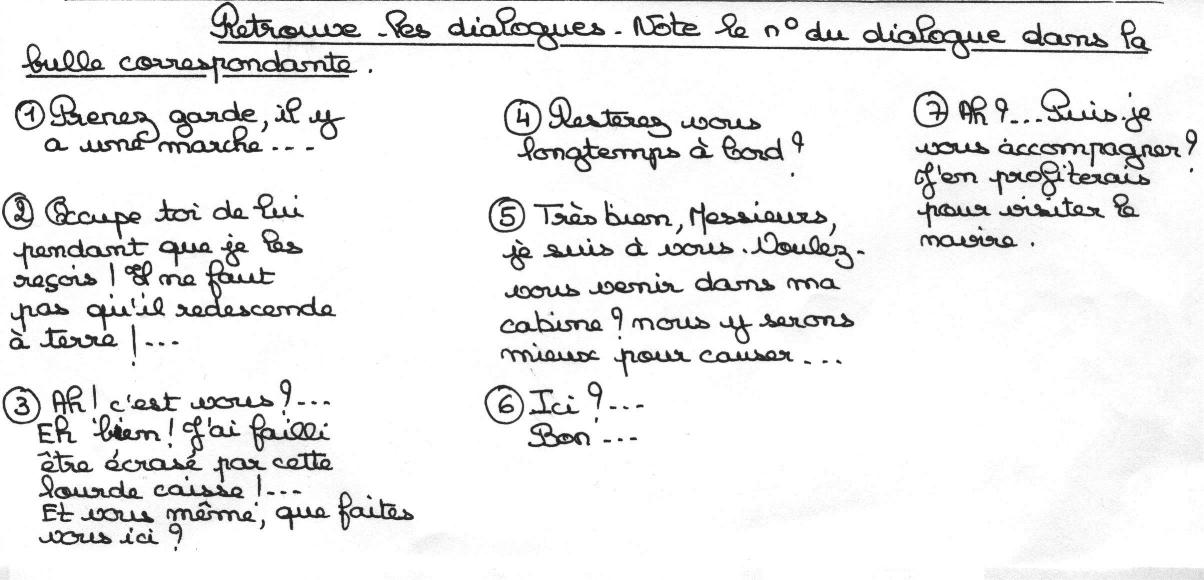 Retrouve les dialogues. Note le n° du dialogue dans la
bulle correspondante.
① Prenez garde, il y
a une marche...
② Occupe toi de lui
pendant que je les
reçois ! Il ne faut
pas qu'il redescende
à terre !...
③ Ah ! c'est vous ?...
Eh bien ! J'ai failli
être écrasé par cette
lourde caisse !...
Et vous même, que faites
vous ici ?
④ Resterez vous
longtemps à bord ?
⑤ Très bien, Messieurs,
je suis à vous. Voulez-
vous venir dans ma
cabine ? nous y serons
mieux pour causer...
⑥ Ici ?...
Bon...
⑦ Ah ?... Puis-je
vous accompagner ?
J'en profiterais
pour visiter le
navire.